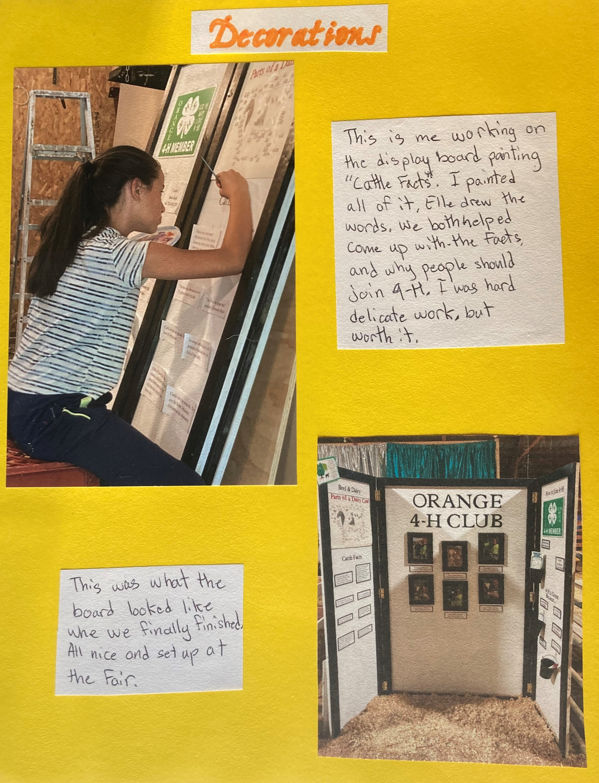 Decorations
ORANGE
4-H MEMBER
Parts of a Da
This is me working on
the display board painting
"Cattle Facts". I painted
all of it, Elle drew the
words. We both helped
come up with the Facts,
and why people should
join 4-H. I was hard
delicate work, but
worth it.
Beef & Dairy
Parts of a Dairy Cow
Cattle Facts
ORANGE
4-H CLUB
4-H MEMBER
This was what the
board looked like
whe we finally finished.
All nice and set up at
the Fair.